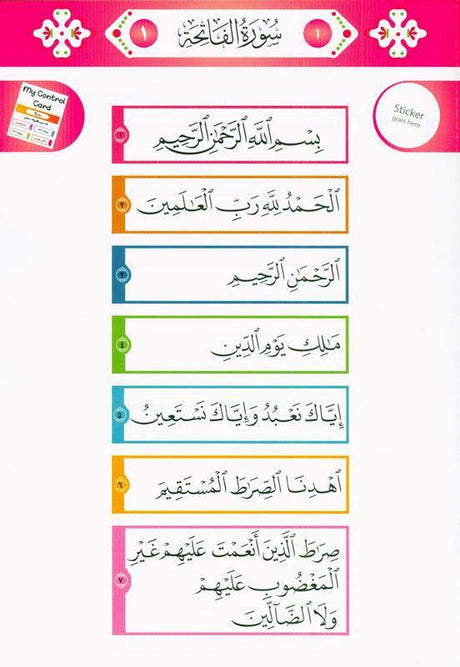 ١ سُورَةُ الفَاتِحَةِ ١
My Control
Card
Sticker
goes here
بِسْمِ ٱللَّهِ ٱلرَّحْمَٰنِ ٱلرَّحِيمِ ١
ٱلْحَمْدُ لِلَّهِ رَبِّ ٱلْعَٰلَمِينَ ٢
ٱلرَّحْمَٰنِ ٱلرَّحِيمِ ٣
مَٰلِكِ يَوْمِ ٱلدِّينِ ٤
إِيَّاكَ نَعْبُدُ وَإِيَّاكَ نَسْتَعِينُ ٥
ٱهْدِنَا ٱلصِّرَٰطَ ٱلْمُسْتَقِيمَ ٦
صِرَٰطَ ٱلَّذِينَ أَنْعَمْتَ عَلَيْهِمْ غَيْرِ
ٱلْمَغْضُوبِ عَلَيْهِمْ ٧
وَلَا ٱلضَّآلِّينَ